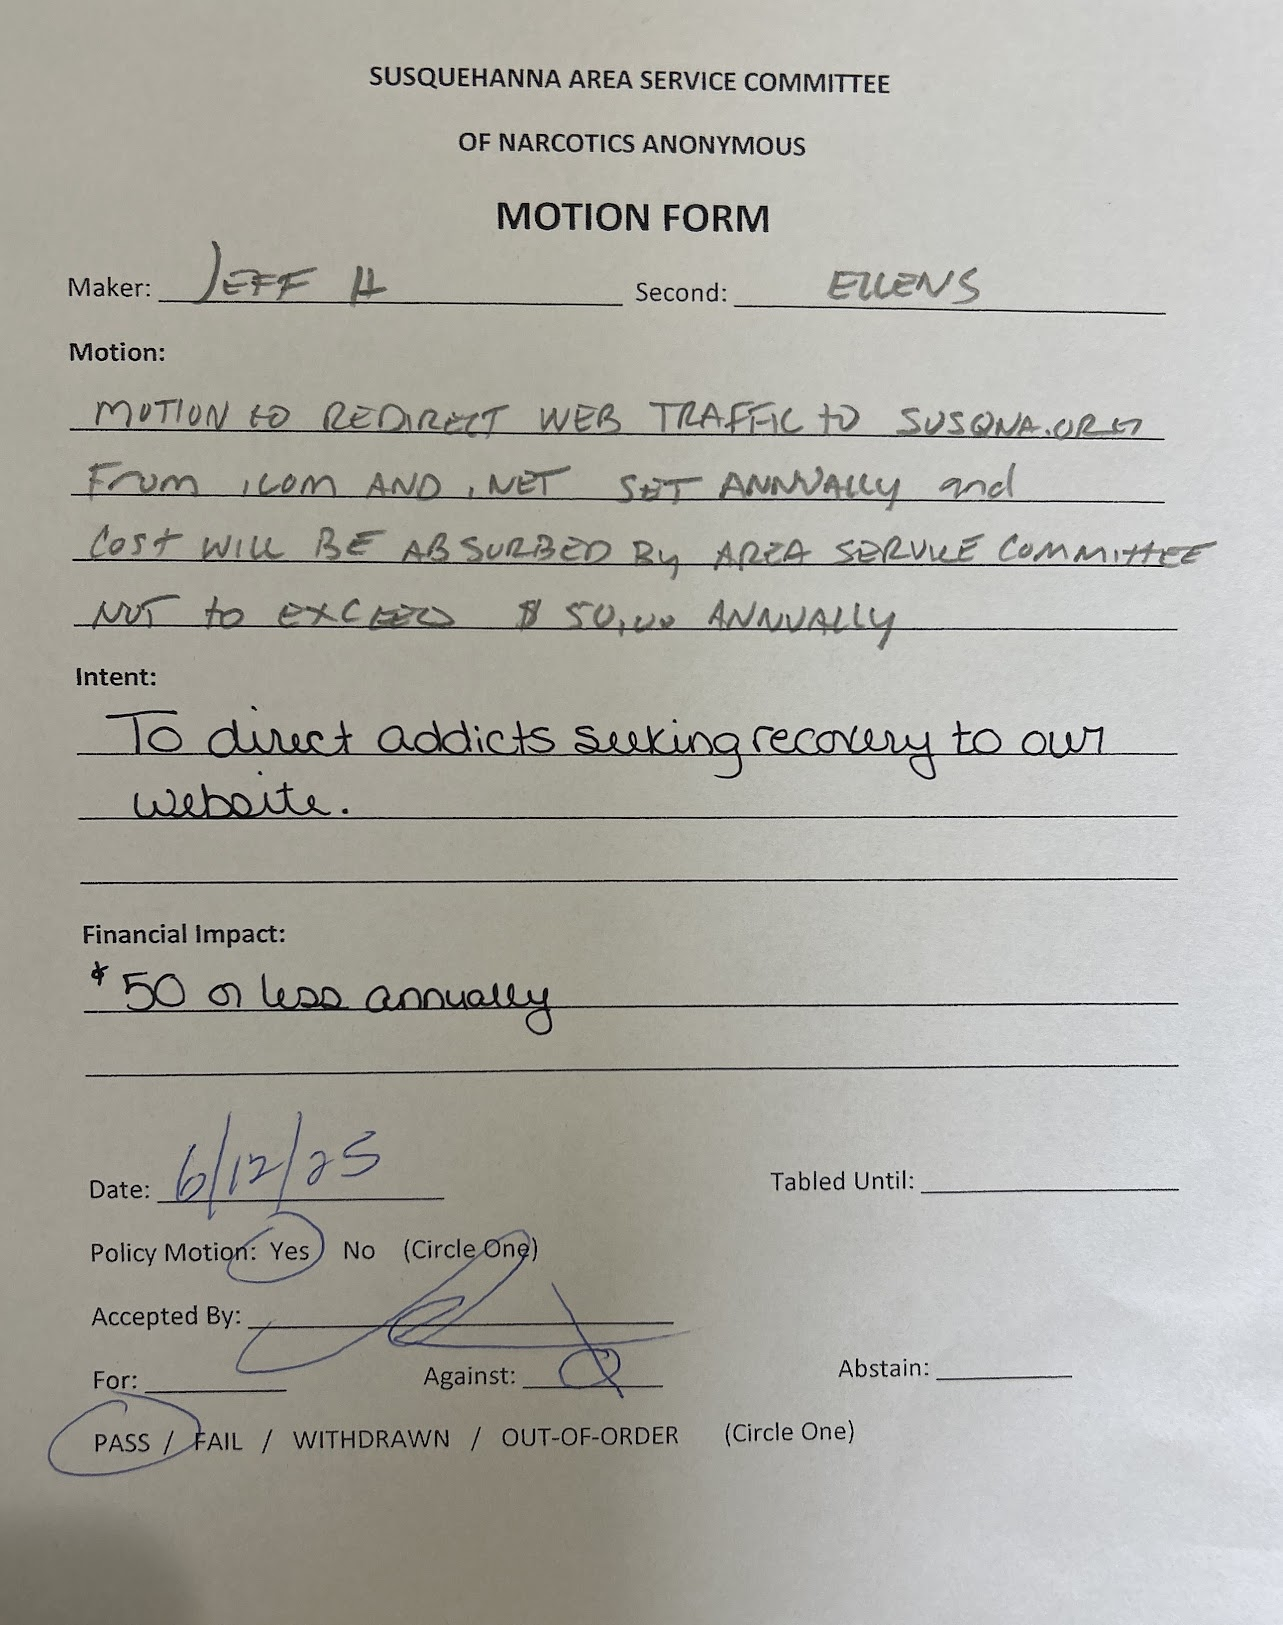 SUSQUEHANNA AREA SERVICE COMMITTEE
OF NARCOTICS ANONYMOUS
MOTION FORM
Maker: JEFF H Second: ELLEN S
Motion:
MOTION to REDIRECT WEB TRAFFIC to SUSQNA.ORG
From .COM AND .NET SET ANNUALLY and
COST WILL BE ABSURBED By AREA SERVICE COMMITTEE
NOT to EXCEED $50.00 ANNUALLY
Intent:
To direct addicts seeking recovery to our
website.
Financial Impact:
$50 or less annually
Date: 6/12/25 Tabled Until:
Policy Motion: Yes No (Circle One)
Accepted By:
For: Against: Abstain:
PASS / FAIL / WITHDRAWN / OUT-OF-ORDER (Circle One)